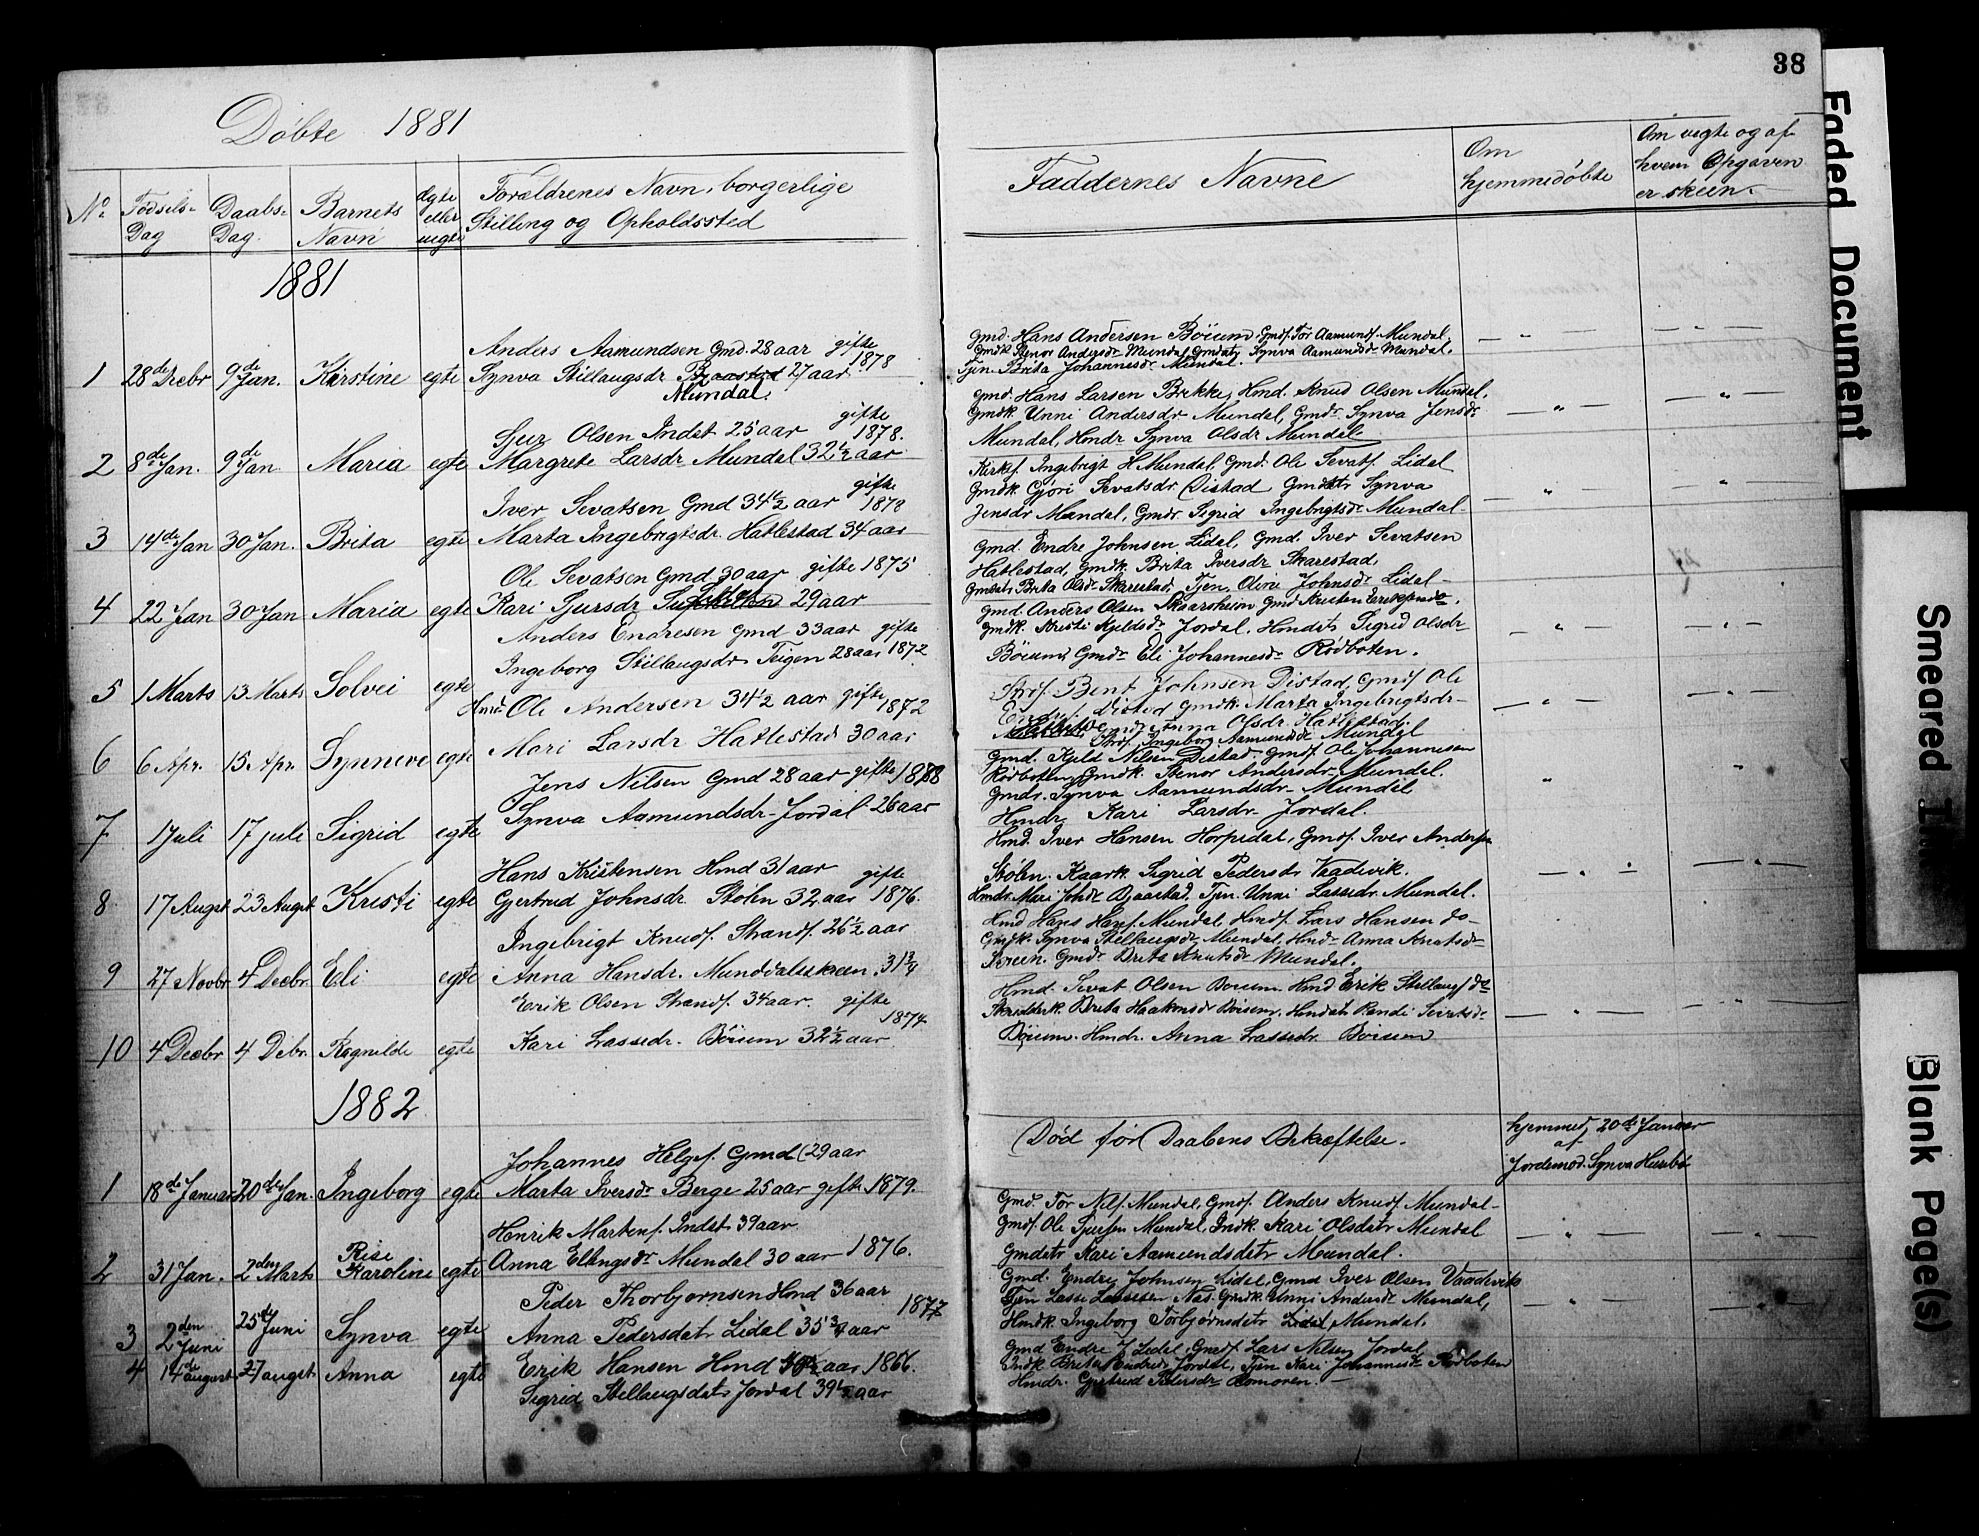 38
Døbte 1881
No
Fødsels-
Dag
Daabs-
Dag
Barnets
Navn
Ægte
eller
uægte
Forældrenes Navn, borgerlige
Stilling og Opholdssted
Faddernes Navne
Om
hjemmedøbte
Om uegte og af
hvem Opgaven
er skeen.
1881
Anders Aamundsen Gmd. 28 aar gifte
1 28de Decbr 9de Jan. Kirstine egte Synva Stillaugsdr 27 aar 1878
Mundal.
Gmd. Hans Andersen Bøium Gmdf. Tor Aamundf. Mundal
Gmdk Stenor Andersdr Mundal, Gmdatr Synva Aamundsdr Mundal.
Tjen Brita Johannesdr Mundal.
Sjur Olsen Indst 25 aar gifte
1878.
2 8de Jan. 9de Jan Maria egte Margrete Larsdr Mundal 32½ aar
Gmd. Hans Larsen Brekke, Hmd. Knud Olsen Mundal,
Gmdk. Unni Andersdr Mundal, Gmdr Synva Jensdr
Mundal, Hmdr Synva Olsdr Mundal
Iver Sevatsen Gmd 34½ aar gifte
1878
3 14de Jan 30 Jan. Brita egte Marta Ingebrigtsdr. Hatlestad 34 aar
Kirkes. Ingebrigt H Mundal, Gmd. Ole Sevatf. Lidal
Gmdk. Gjøri Sevatsdr. Distad Gmdatr Synva
Jensdr Mundal, Gmdr. Sigrid Ingebrigtsdr Mundal
Ole Sevatsen Gmd 30 aar gifte 1875
4 22 Jan 30 Jan Maria egte Kari Sjursdr 29 aar
Gmd. Endre Johnsen Lidal, Gmd. Iver Sevatsen
Hatlestad, Gmdk. Brita Iversdr Skarestad,
Gmdatr Brita Olsdr Skarestad, Tjen. Oline Johnsdr Lidal
Anders Endresen Gmd 33 aar gifte
Ingeborg Stillaugsdr Teigen 28 aar 1872
5 1 Marts 13 Marts Solvei egte
Gmd. Anders Olsen Skaarsheim Gmd Kristen
Gmdk. Kristi Kjeldsdr Jordal. Hmdatr Sigrid Olsdr
Bøium Gmdr Eli Johannesdr Rødboten.
Hmd Ole Andersen 34½ aar gifte 1872
6 6 Apr. 15 Apr. Synneve egte Mari Larsdr Hatlestad 30 aar
Bent Johnsen Distad, Gmdf Ole
Distad Gmdk. Marta Ingebrigtsdr
Olsdr. Hatlestad.
Ingeborg Aamundsdr Mundal
Jens Nilsen Gmd 28 aar gifte
7 1 Juli 17 juli Sigrid egte Synva Aamundsdr Jordal 26 aar
Gmd. Kjeld Nilsen Distad Gmdf Ole Johannesen
Rødboten, Gmdk. Stenor Andersdr Mundal.
Gmdr. Synva Aamundsdr Mundal
Hmdr Kari Larsdr Jordal.
Hans Kristensen Hmd 31 aar gifte
8 17 Augst 23 Augst Kristi egte Gjertrud Johnsdr. Støhn 32 aar 1876.
Hmd. Iver Hansen Horpedal, Gmdf. Iver Andersen
Støhn. Kaark. Sigrid Pedersdr Vaadevik.
Hmdr. Mari Johdr Bjaastad, Tjen. Unni Lassedr. Mundal.
Ingebrigt Knudf. Strandf. 26½ aar
9 27 Novbr 4 Decbr. Eli egte Anna Hansdr. Munddalsskreen 31¾
Hmd Hans Hansf. Mundal, Hmdf. Lars Hansen do
Gmdk. Synva Stellaugsdr Mundal, Hmdr Anna Knutsdr
Skreen. Gmdr Brita Knutsdr Mundal.
Erik Olsen Strandf. 34 aar. gifte
1874
10 4 Decbr 4 Debr. Ragnilde egte Kari Lassedr. Bøium 32½ aar
Hmd. Sevat Olsen Boium. Hmd Erik Stellaugf do
Skrædderk. Brita Haakonsdr Boium, Hmdatr Randi Sevatsdr
Bøium. Hmdr. Anna Lassedr. Boium
1882
Johannes Helgef. Gmd (29 aar
1 18de Januar 20de Jan. Ingeborg egte Marta Iversdr Berge 25 aar gifte 1879.
Død før Daabens Bekræftelse.
hjemmed, 20de Januar
af
Jordemod. Synva Husebø
Henrik Martenf. Indst 39 aar
2 31 Jan. 2den Marts Rise
Karoline egte Anna Ellingsdr Mundal 30 aar 1876.
Gmd. Tor Nilf. Mundal, Gmdf. Anders Knudf. Mundal
Gmdf. Ole Sjursen Mundal, Indk. Kari Olsdatr Mundal
Gmdatr Kari Aamundsdatr Mundal.
Peder Thorbjørnsen Hmd 36 aar
1877
3 2den Juni 25de Juni Synva egte Anna Pedersdatr Lidal 35¾ aar
Gmd. Endre Johnsen Lidal, Gmd Iver Olsen Vaadevik
Tjen Lasse Lassesen Nas. Gmdk. Unni Andersdr Mundal,
Hmdk. Ingeborg Torbjørnsdatr Mundal.
4 14de august 27 augst. Anna egte Erik Hansen Hmd aar 1866.
Sigrid Stellaugsdatr Jordal 39½ aar
Gmd Endre J Lidal, Gmdf. Lars Nilsen Jordal
Indk. Brita Endresdr Jordal, Tjen Kari Johannesdr Rødboten
Hmdr. Gjertrud Pedersdr Romoren.
Faded Document
Smeared Ink
Blank Page(s)